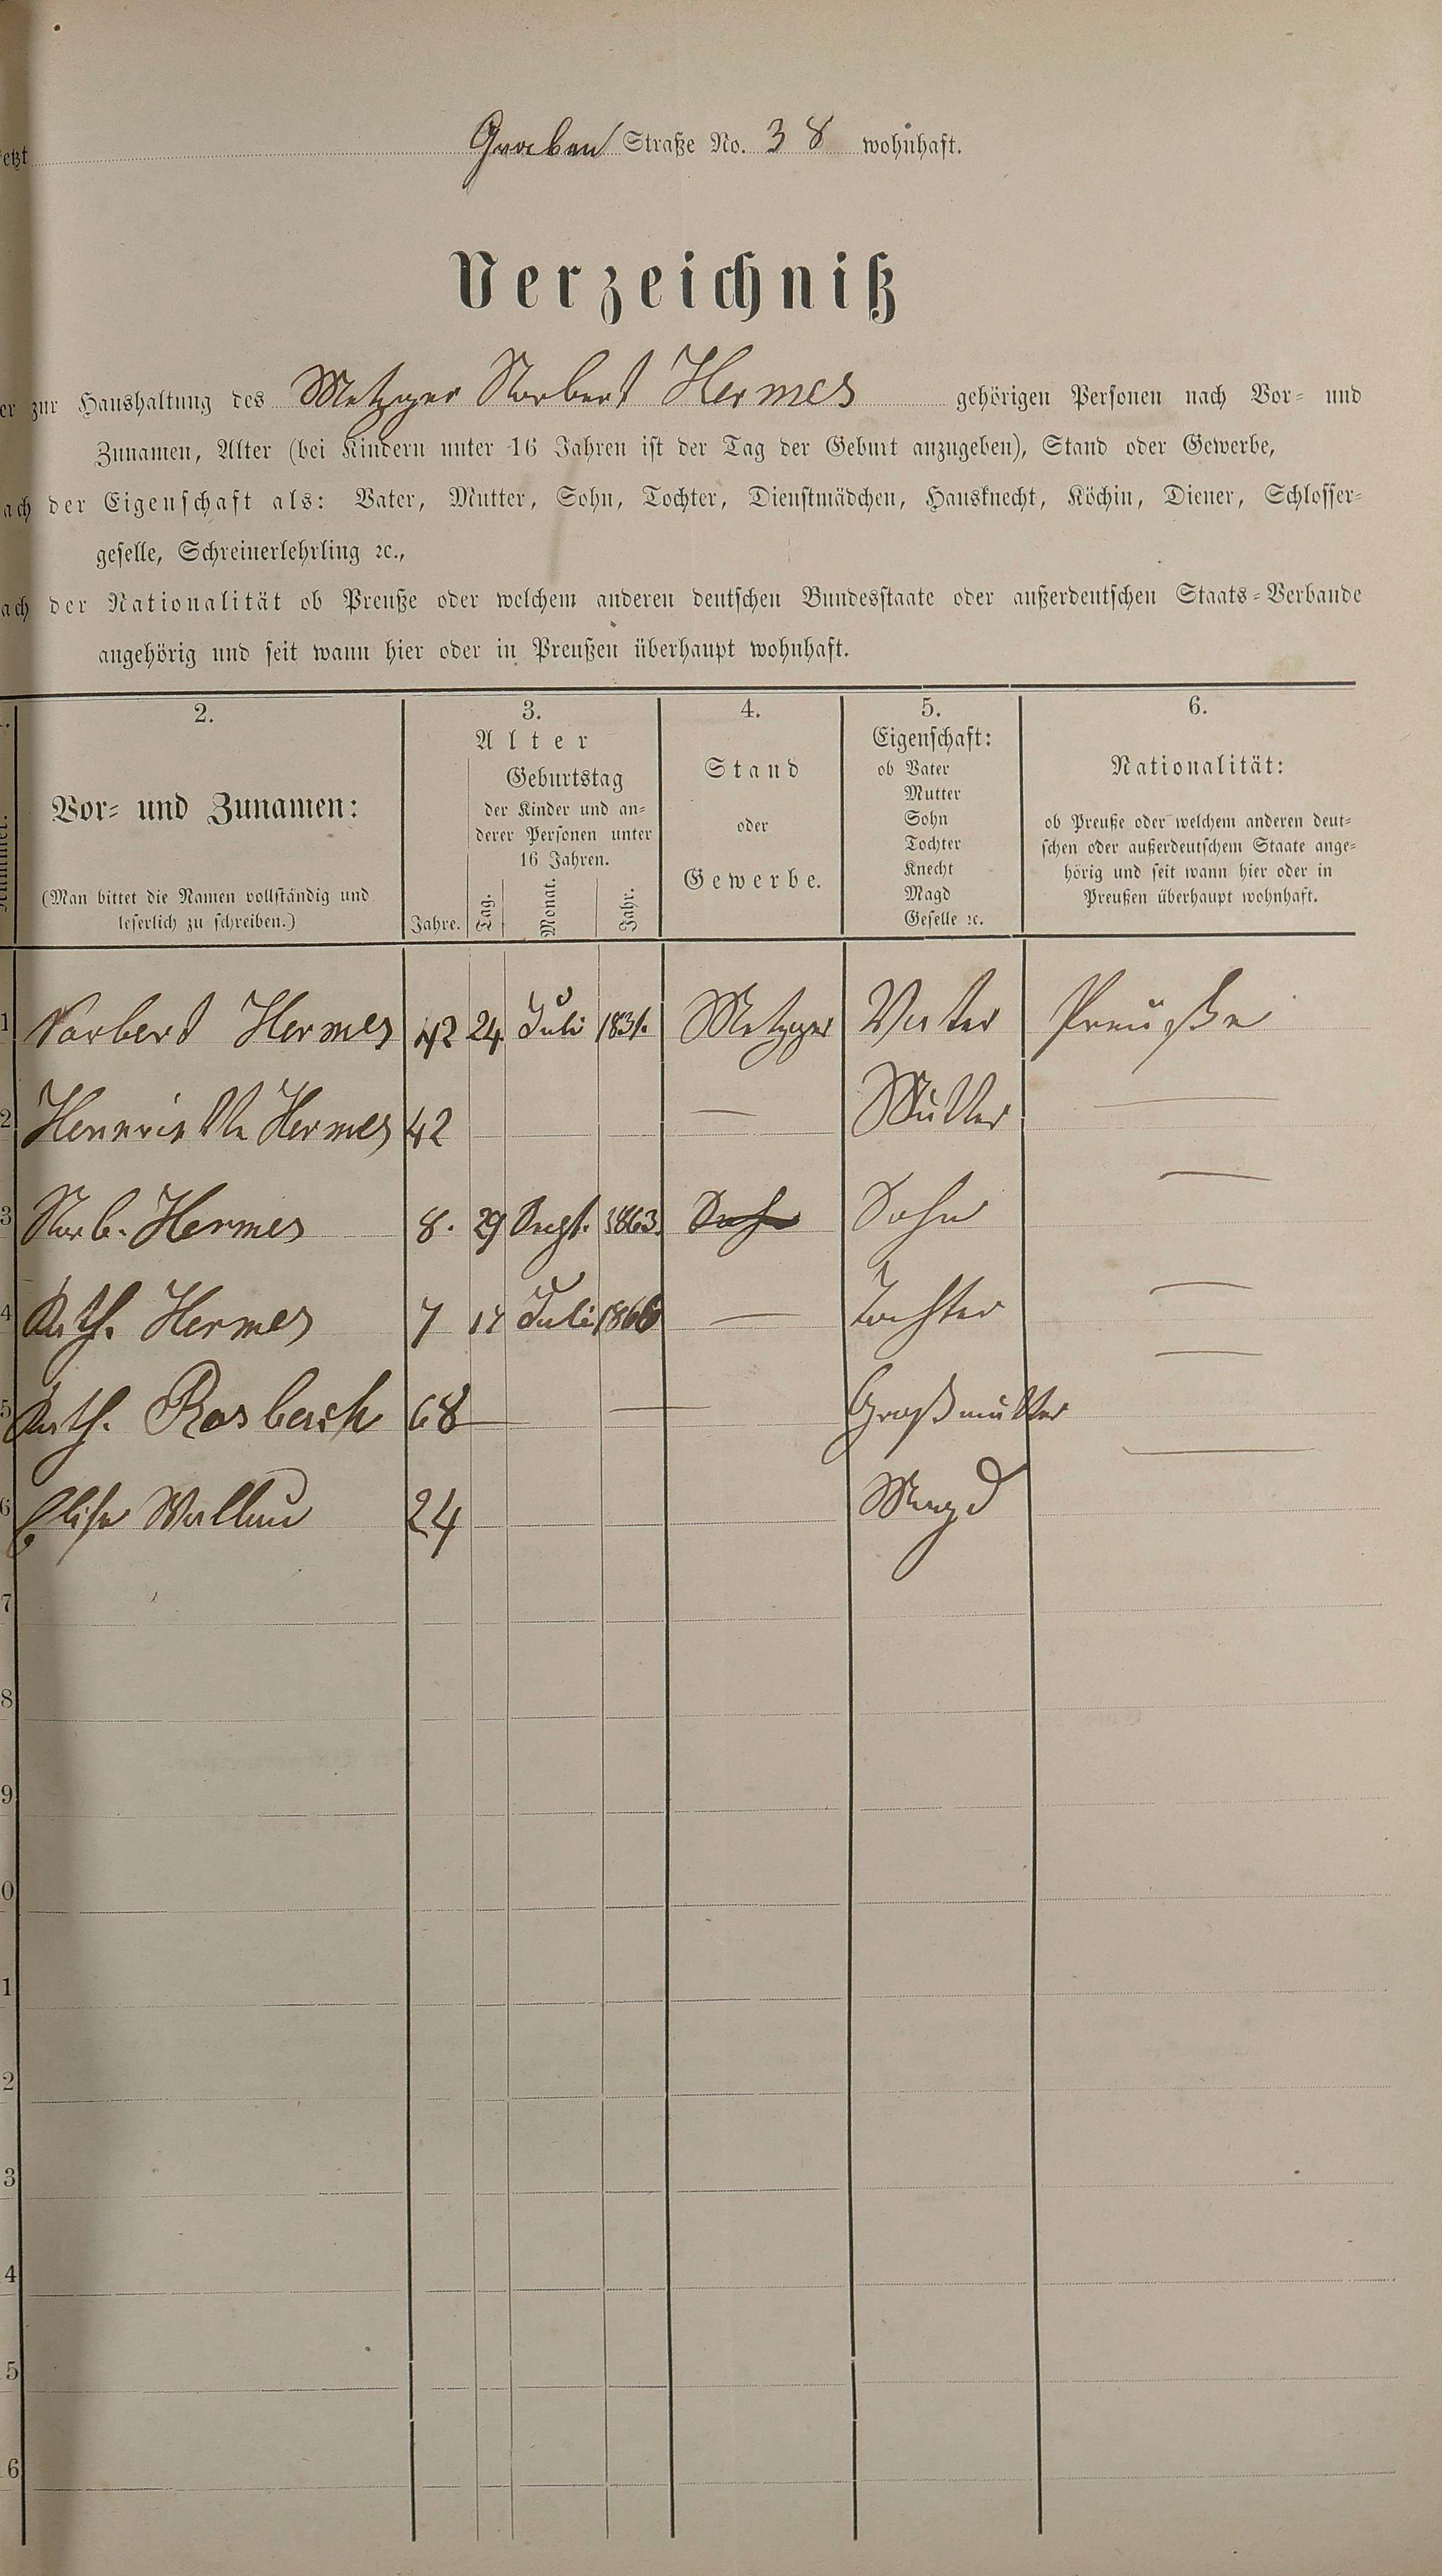 etzt Graben Straße No. 38 wohnhaft.
Verzeichniß
er zur Haushaltung des Metzger Norbert Hermes gehörigen Personen nach Vor- und
Zunamen, Alter (bei Kindern unter 16 Jahren ist der Tag der Geburt anzugeben), Stand oder Gewerbe,
ach der Eigenschaft als: Vater, Mutter, Sohn, Tochter, Dienstmädchen, Hausknecht, Köchin, Diener, Schlosser-
geselle, Schreinerlehrling ꝛc.,
ach der Nationalität ob Preuße oder welchem anderen deutschen Bundesstaate oder außerdeutschen Staats-Verbande
angehörig und seit wann hier oder in Preußen überhaupt wohnhaft.
2.
Vor- und Zunamen:
(Man bittet die Namen vollständig und
leserlich zu schreiben.)
3.
Alter
Jahre.
Geburtstag
der Kinder und an-
derer Personen unter
16 Jahren.
Tag.
Monat.
Jahr.
4.
Stand
oder
Gewerbe.
5.
Eigenschaft:
ob Vater
Mutter
Sohn
Tochter
Knecht
Magd
Geselle ꝛc.
6.
Nationalität:
ob Preuße oder welchem anderen deut-
schen oder außerdeutschem Staate ange-
hörig und seit wann hier oder in
Preußen überhaupt wohnhaft.
1 Norbert Hermes 42 24. Juli 1831. Metzger Vater Preuße
2 Hennriette Hermes 42 — Mutter —
3 Norb. Hermes 8. 29 Sept. 1863. Sohn Sohn —
4 Kath. Hermes 7 14 Juli 1866 — Tochter —
5 Kath. Rosbach 68 — Großmutter —
6 Elise Wallau 24 Magd —
7
8
9
0
1
2
3
4
5
6